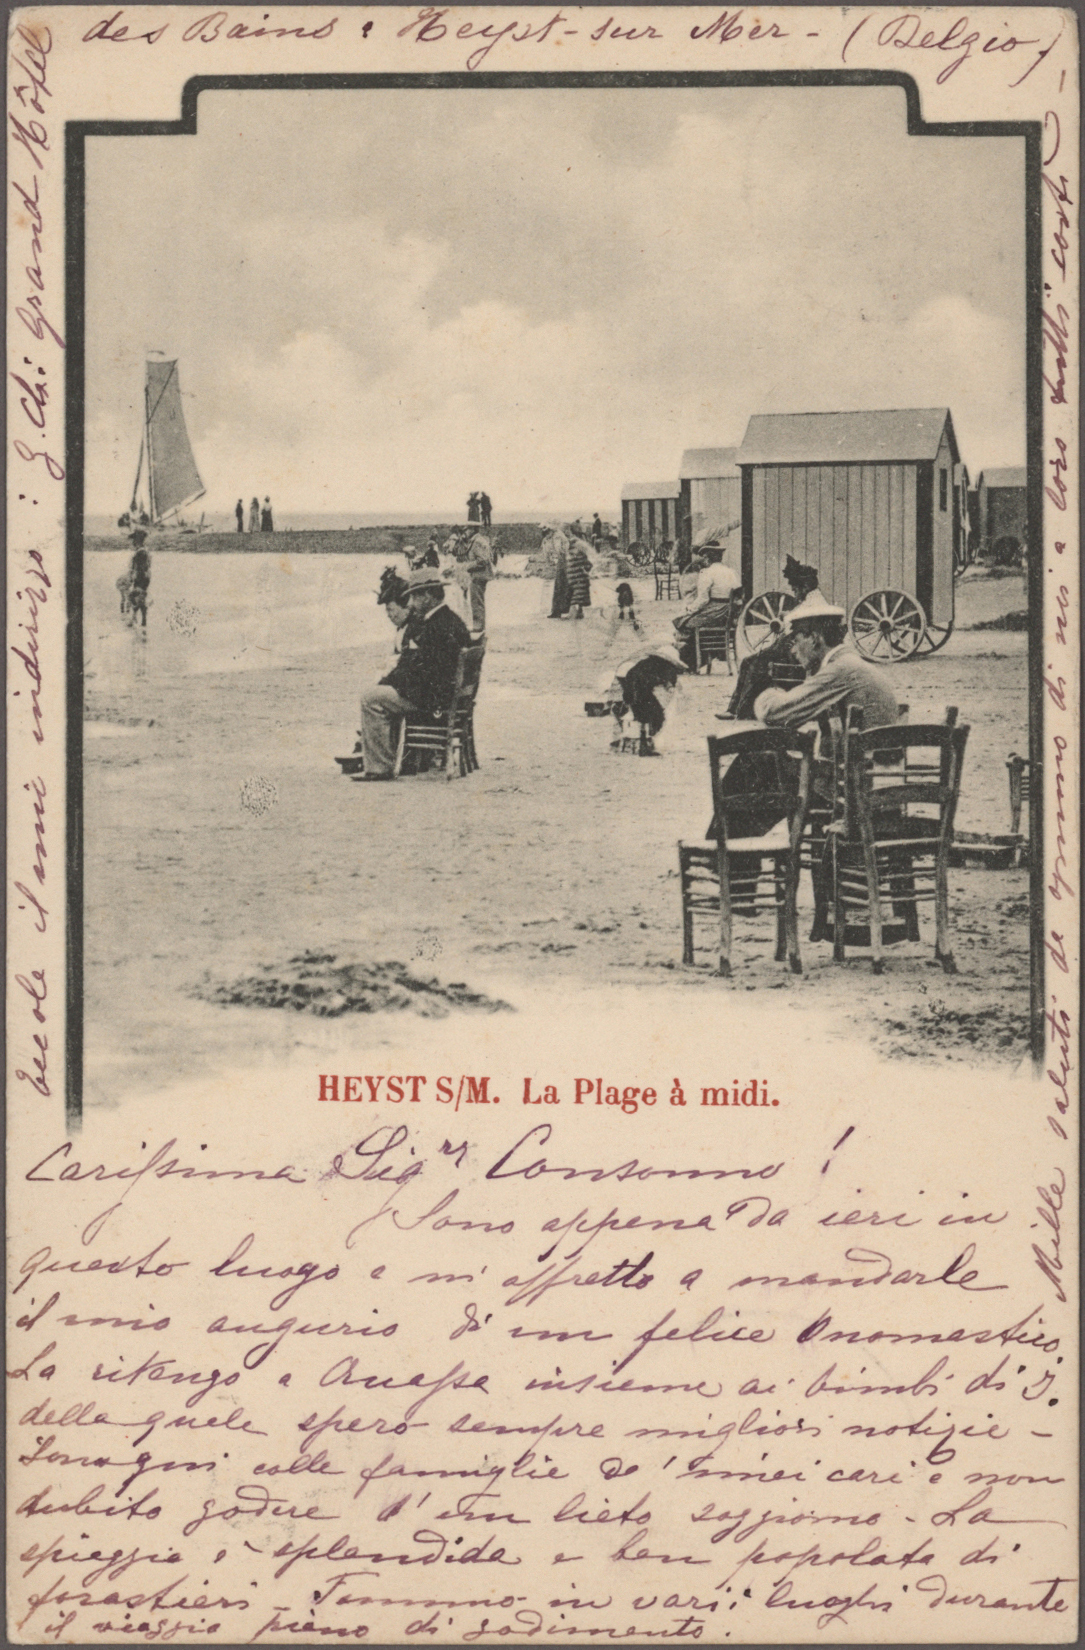 HEYST S/M. La Plage à midi.
Carissima Sigra Consonno!
Sono appena da ieri in
questo luogo e m'affretto a mandarle
il mio augurio di un felice Onomastico.
La ritengo a insieme ai bimbi di I.
della quale spero sempre migliori notizie -
Sono qui colle famiglie de' miei cari e non
dubito godere d'un lieto soggiorno - La
spiaggia è splendida e ben popolata di
forastieri - Fummo in varii luoghi durante
il viaggio pieno di godimento.
Mille saluti da ognuno di noi a loro tutti costì -
Eccole il mio indirizzo: Grand Hôtel
des Bains: Heyst-sur Mer - (Belgio)